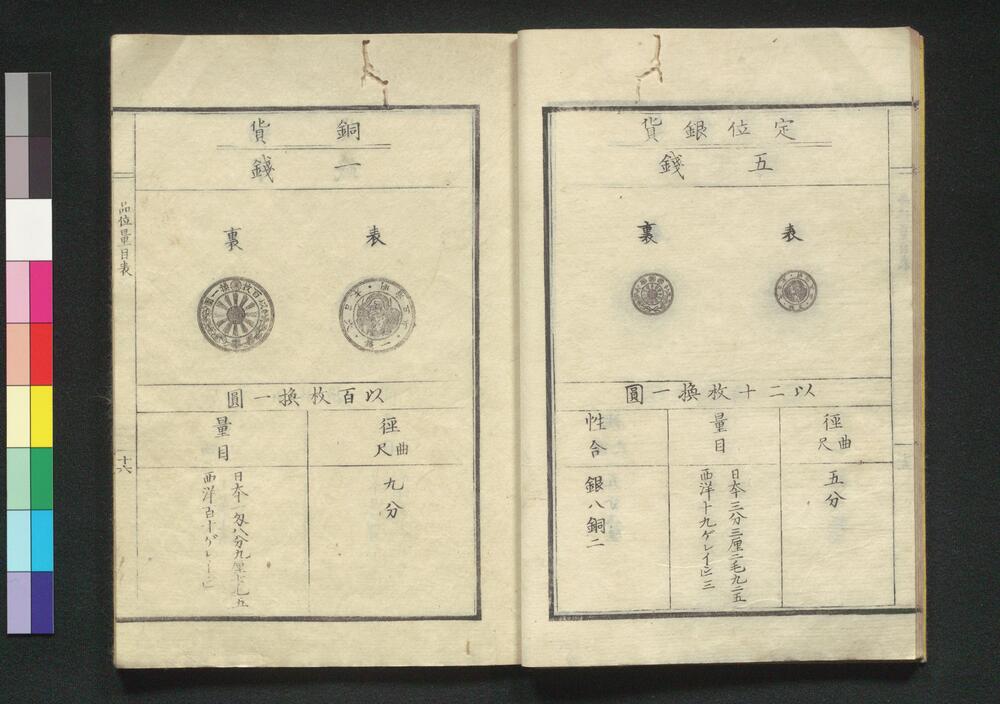 定位銀貨
五錢
表
裏
以二十枚換一圓
徑
曲尺
五分
量目
日本三分三厘二毛九二五
西洋十九ゲレイン三
性合
銀八銅二
銅貨
一錢
表
裏
以百枚換一圓
徑
曲尺
九分
量目
日本一匁八分九厘七毛五
西洋百十ゲレイン
品位量目表
十六